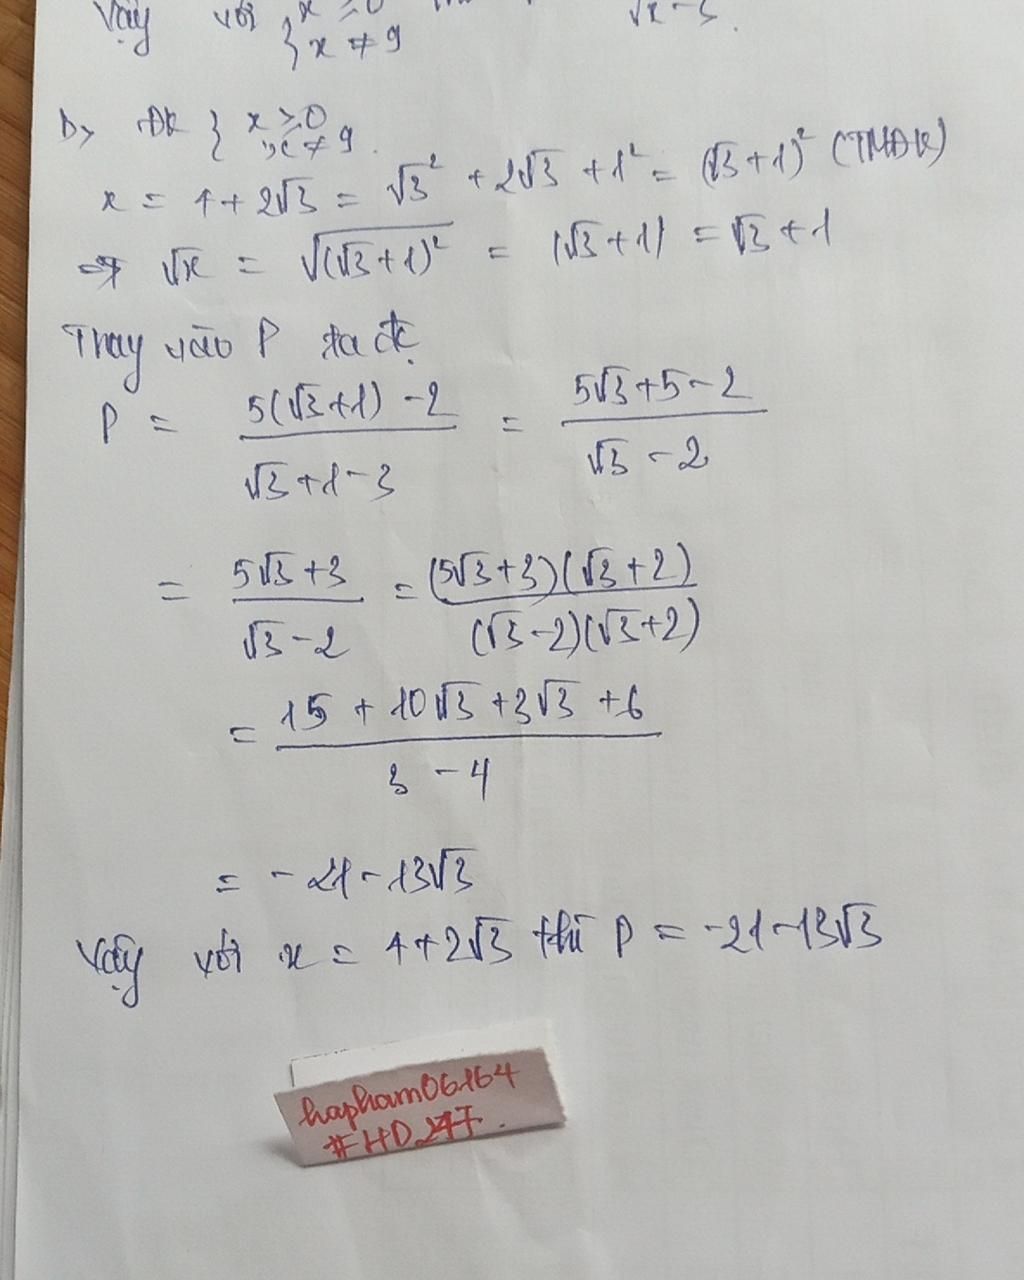 Vậy với { x ≥ 0
x ≠ 9
√x - 3.
b, ĐK { x ≥ 0
x ≠ 9.
x = 4 + 2√3 = √3² + 2√3 + 1² = (√3 + 1)² (TMĐK)
=> √x = √(√3+1)² = |√3 + 1| = √3 + 1
Thay vào P ta đc
P = 5(√3+1) - 2 / √3 + 1 - 3 = 5√3 + 5 - 2 / √3 - 2
= 5√3 + 3 / √3 - 2 = (5√3+3)(√3+2) / (√3-2)(√3+2)
= 15 + 10√3 + 3√3 + 6 / 3 - 4
= - 21 - 13√3
Vậy với x = 4 + 2√3 thì P = -21 - 13√3
hapham06164
#HD247.